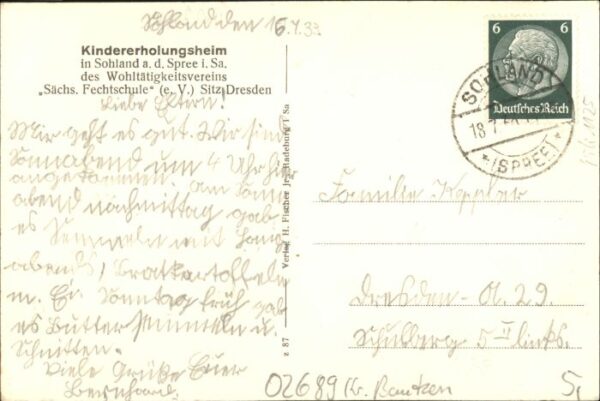 Sohland den 16.7.33
Kindererholungsheim
in Sohland a. d. Spree i. Sa.
des Wohltätigkeitsvereins
„Sächs. Fechtschule“ (e. V.) Sitz Dresden
Liebe Eltern!
Mir geht es gut. Wir sind
Sonnabend um 4 Uhr hier
angekommen. Am Sonn-
abend nachmittag gab
es Semmeln mit Honig
abends, Bratkartoffeln
m. Ei. Sonntag früh gab
es Buttersemmeln u.
Schnitten.
Viele Grüße Euer
Bernhard.
z 87
Verlag H. Fischer jr., Radeburg i Sa
6 6
Deutsches Reich
SOHLAND
18.7.
*(SPREE)*
Familie Kppler
Dresden-A. 29.
Schulberg 5 II links.
02689 Kr. Bautzen
5,